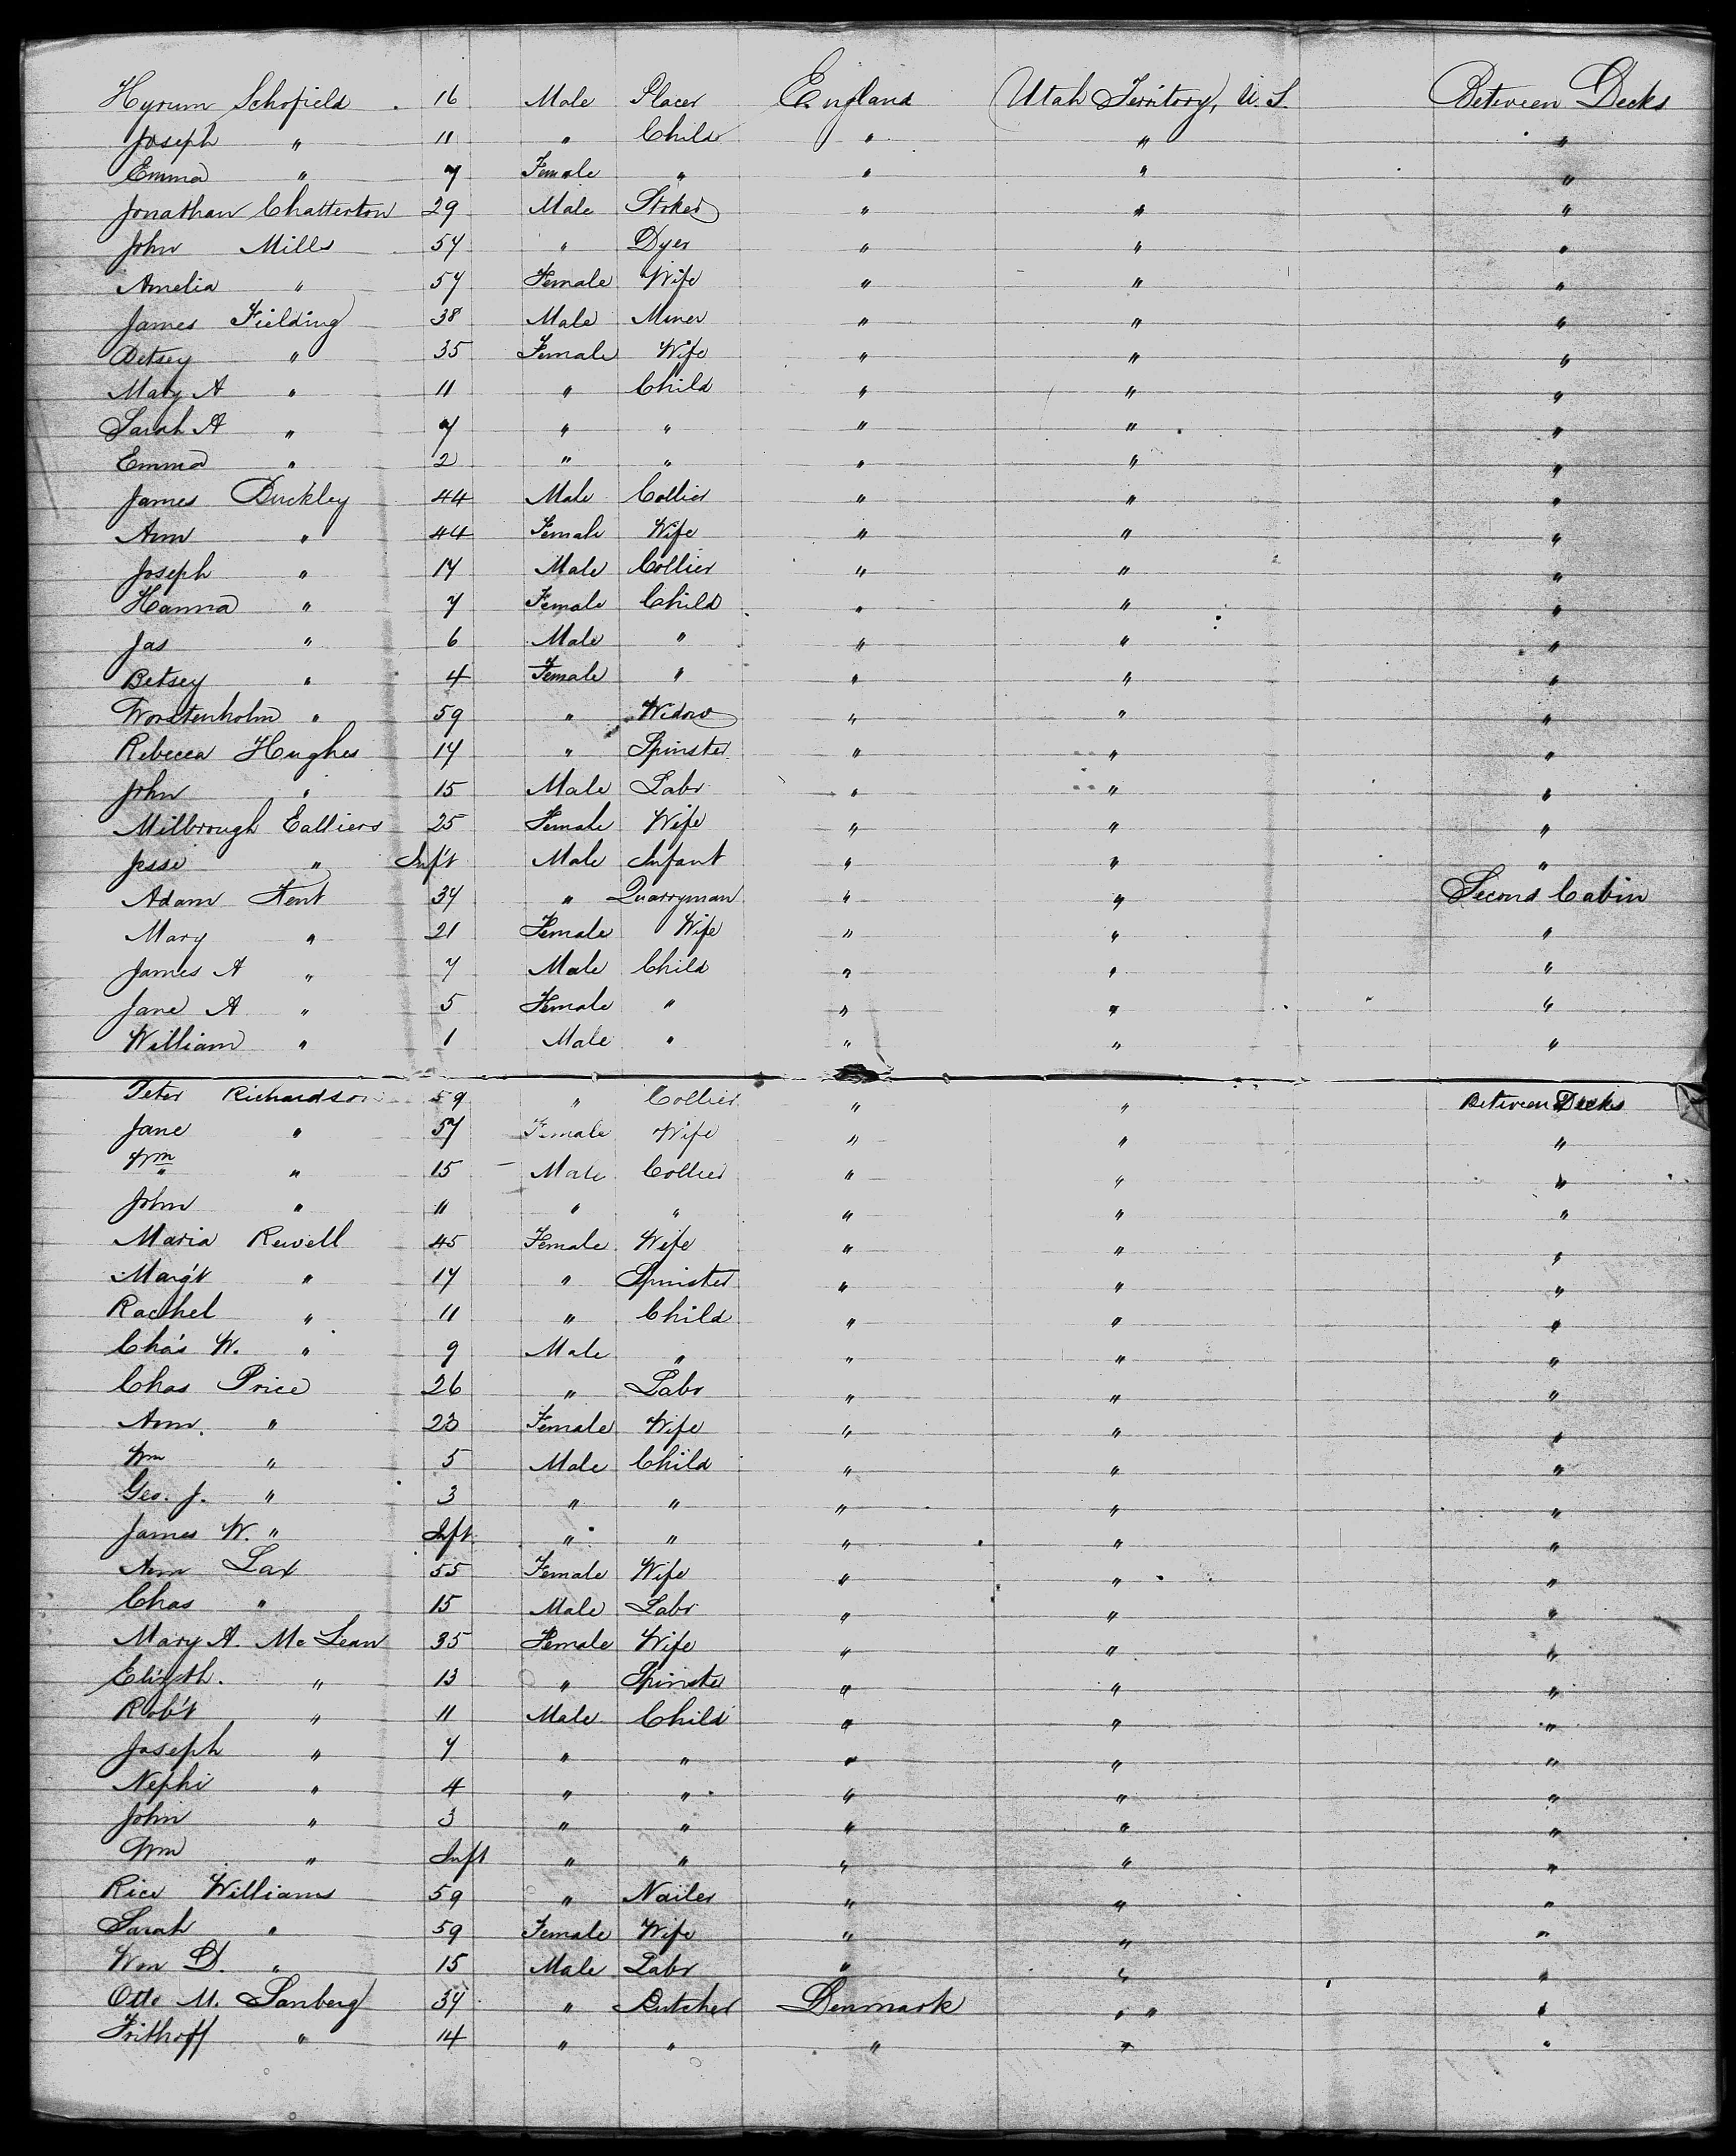 Hyrum Schofield 16 Male Placer England Utah Territory, U.S. Between Decks
Joseph " 11 " Child " " "
Emma " 7 Female " " " "
Jonathan Chatterton 29 Male Stoker " " "
John Mills 57 " Dyer " " "
Amelia " 57 Female Wife " " "
James Fielding 38 Male Miner " " "
Betsey " 35 Female Wife " " "
Mary A " 11 " Child " " "
Sarah A " 7 " " " " "
Emma " 2 " " " " "
James Buckley 44 Male Collier " " "
Ann " 44 Female Wife " " "
Joseph " 17 Male Collier " " "
Hanna " 7 Female Child " " "
Jas " 6 Male " " " "
Betsey " 4 Female " " " "
Worstenholm " 59 " Widow " " "
Rebecca Hughes 17 " Spinster " " "
John " 15 Male Labr " " "
Milbrough Ealliers 25 Female Wife " " "
Jesse " Inf't Male Infant " " "
Adam Kent 37 " Quarryman " " Second Cabin
Mary " 21 Female Wife " " "
James A " 7 Male Child " " "
Jane A " 5 Female " " " "
William " 1 Male " " " "
Peter Richardson 59 " Collier " " Between Decks
Jane " 57 Female Wife " " "
Wm " 15 Male Collier " " "
John " 11 " " " " "
Maria Rewell 45 Female Wife " " "
Marg't " 17 " Spinster " " "
Rachel " 11 " Child " " "
Cha's W. " 9 Male " " " "
Chas Price 26 " Labr " " "
Ann. " 23 Female Wife " " "
Wm " 5 Male Child " " "
Geo. J. " 3 " " " " "
James W. " Inft. " " " " "
Ann Lax 55 Female Wife " " "
Chas " 15 Male Labr " " "
Mary A. McLean 35 Female Wife " " "
Eliz'th. " 13 " Spinster " " "
Rob't " 11 Male Child " " "
Joseph " 7 " " " " "
Nephi " 4 " " " " "
John " 3 " " " " "
Wm " Inft " " " " "
Rice Williams 59 " Nailer " " "
Sarah " 59 Female Wife " " "
Wm D. " 15 Male Labr " " "
Otto M. Sanberg 37 " Butcher Denmark " " "
Frithoff " 14 " " " " "